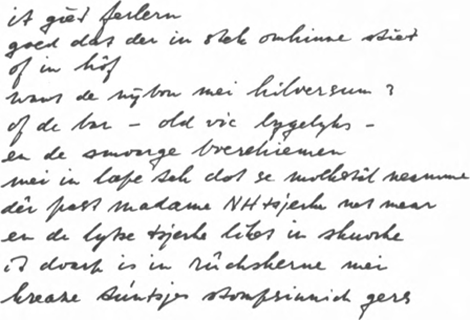 it giet ferlern
goed dat der in stek omhinne stiet
of in hôf
want de nijbou mei hilversum ?
of de bar – old vic bygelyks –
en de smoarge boerehiemen
mei in lape dat se molkstâl neamme
dêr past madame NH tsjerke net mear
en de lytse tsjerke liket in skuorke
it doarp is in mei
kreaze túntsjes stompsinnich gers